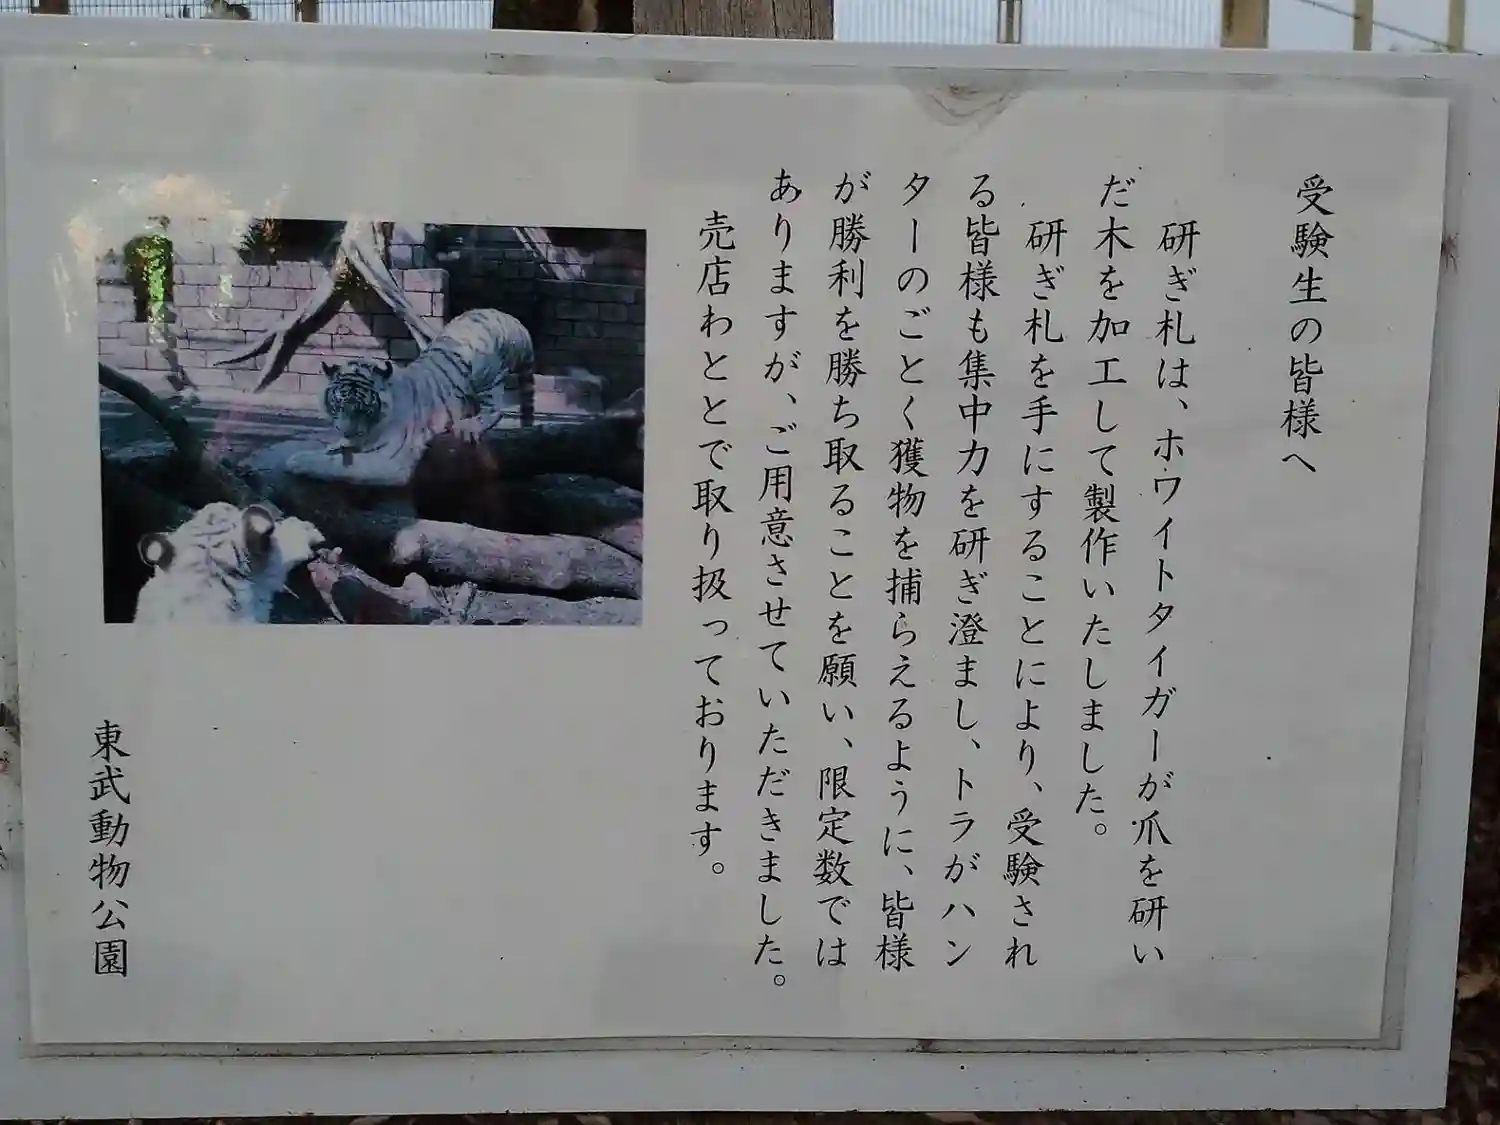 受験生の皆様へ
研ぎ札は、ホワイトタイガーが爪を研い
だ木を加工して製作いたしました。
研ぎ札を手にすることにより、受験され
る皆様も集中力を研ぎ澄まし、トラがハン
ターのごとく獲物を捕らえるように、皆様
が勝利を勝ち取ることを願い、限定数では
ありますが、ご用意させていただきました。
売店わととで取り扱っております。
東武動物公園